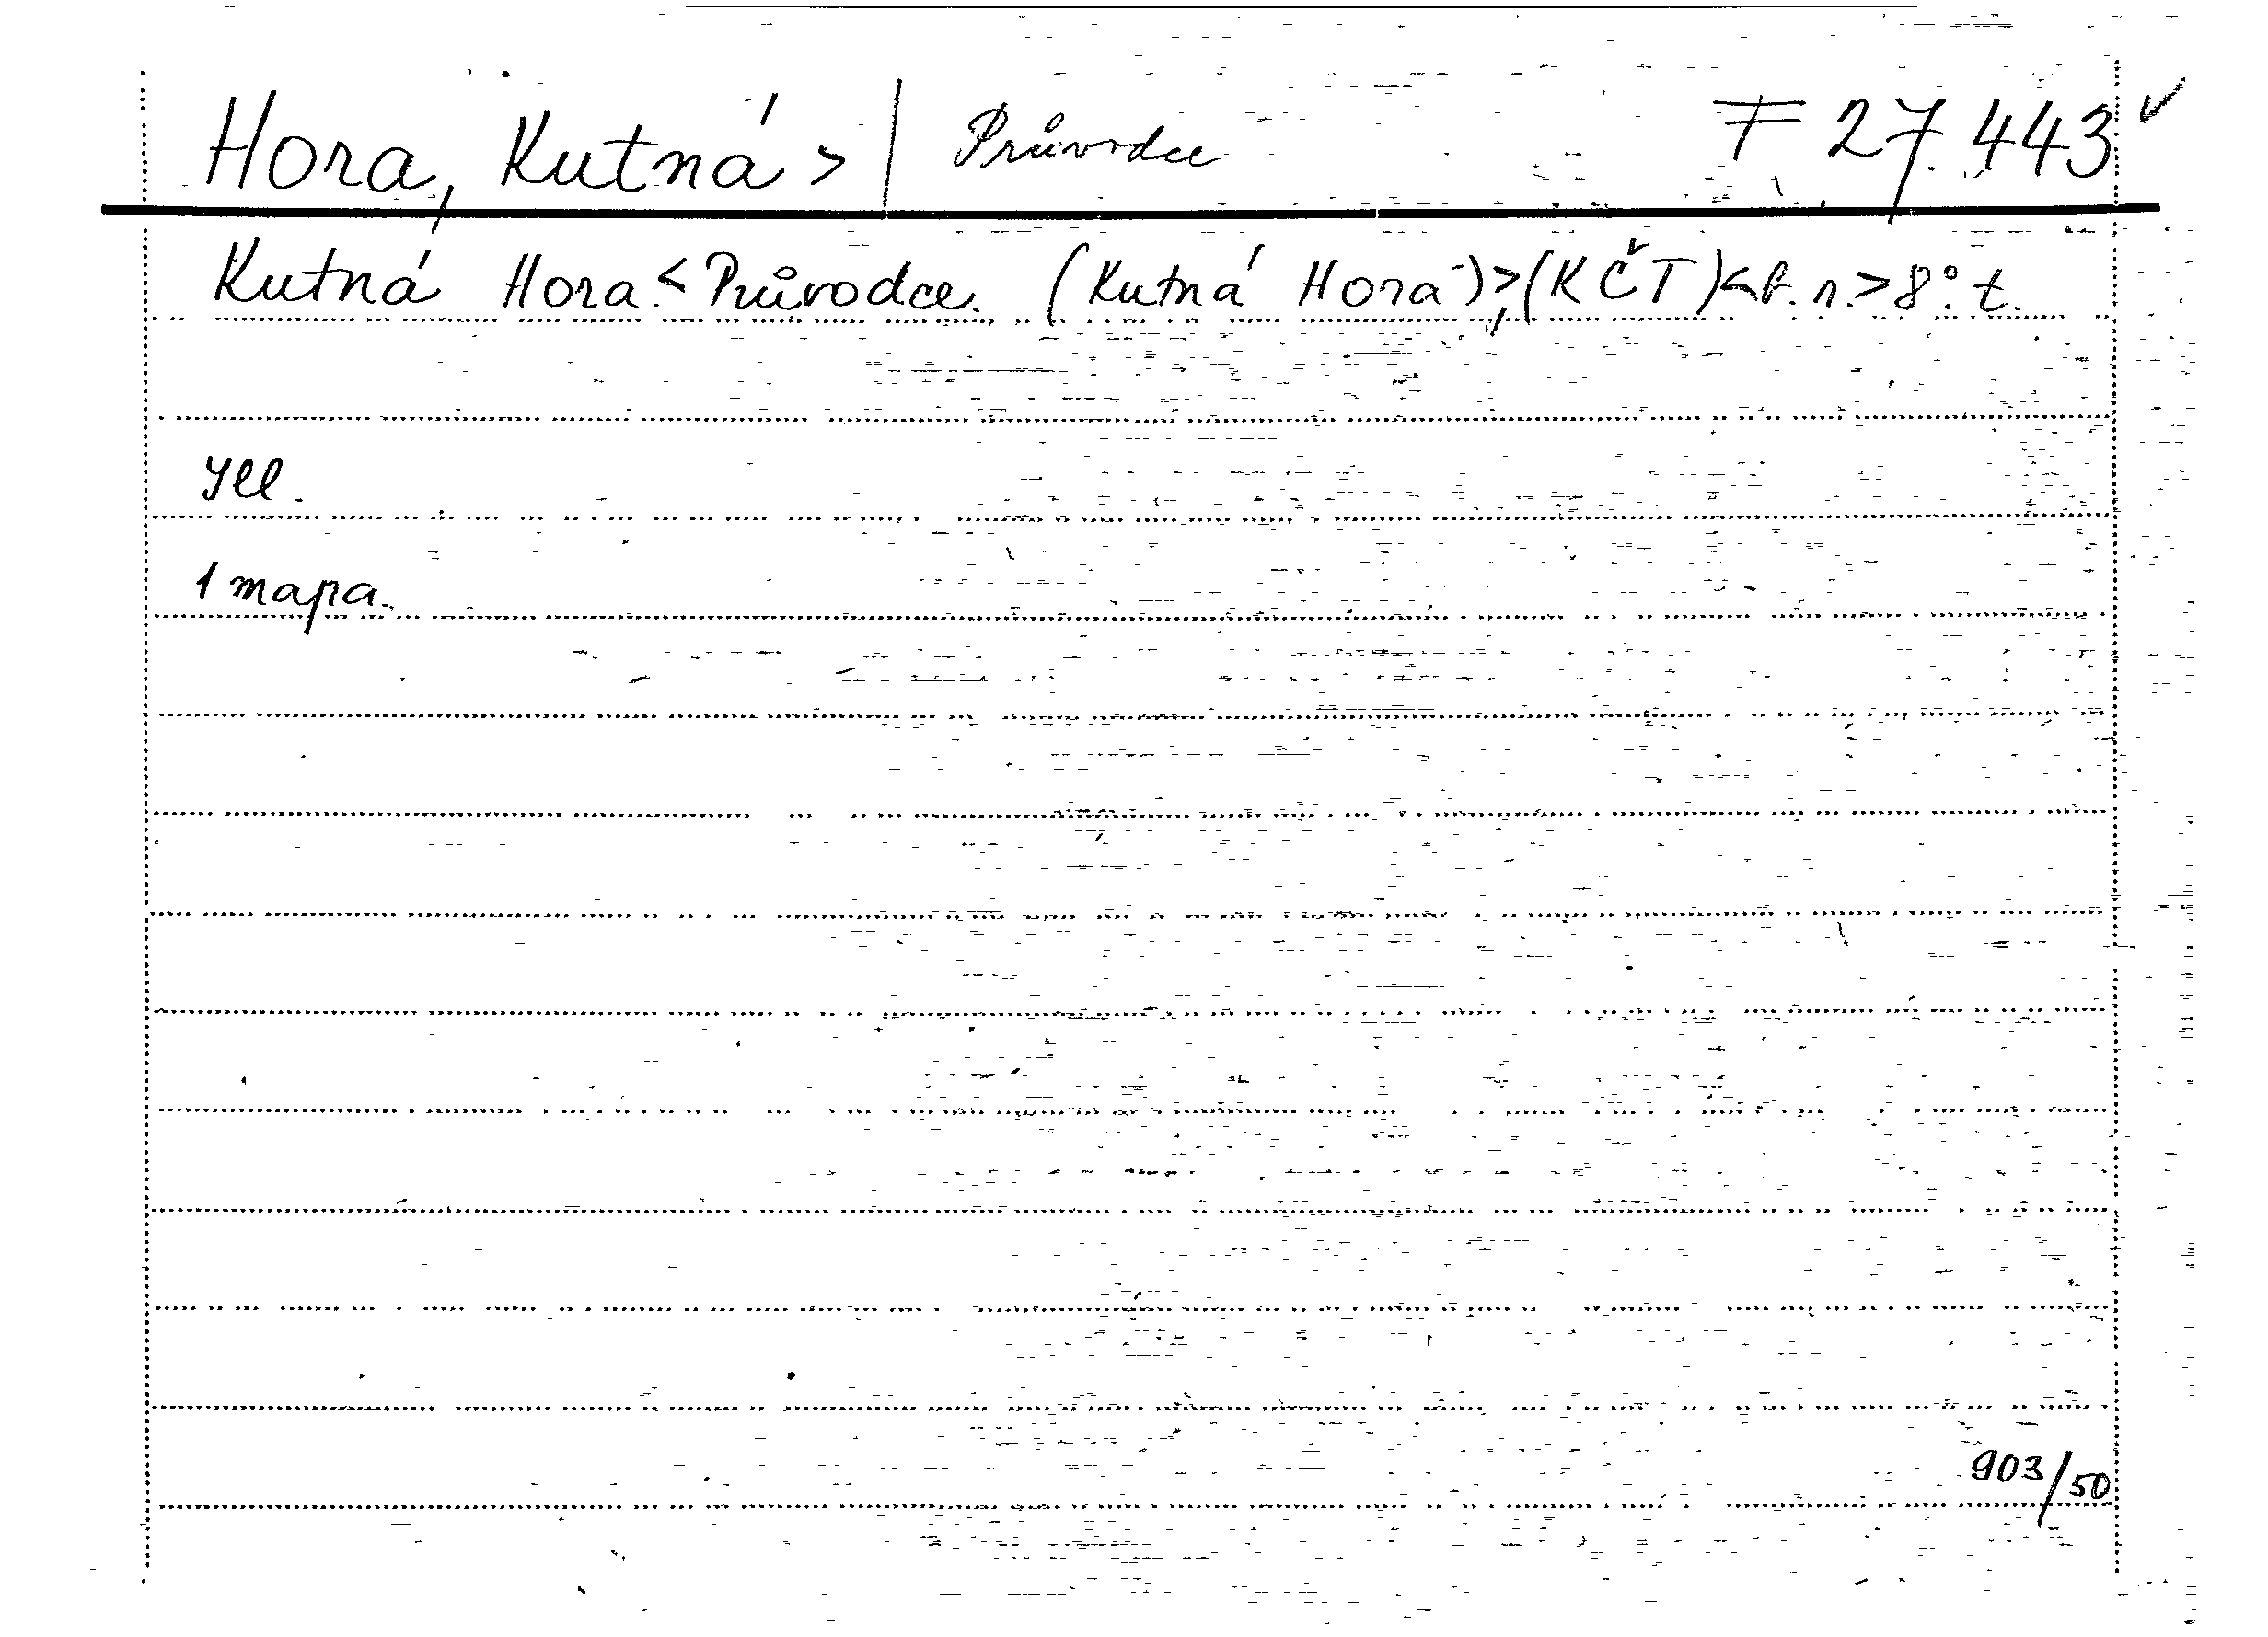 Hora, Kutná > | Průvodce F 27.443 ✓
Kutná Hora.< Průvodce. (Kutná Hora)>, (KČT)<b. r.> 8°. t.
Ill.
1 mapa.
903/50